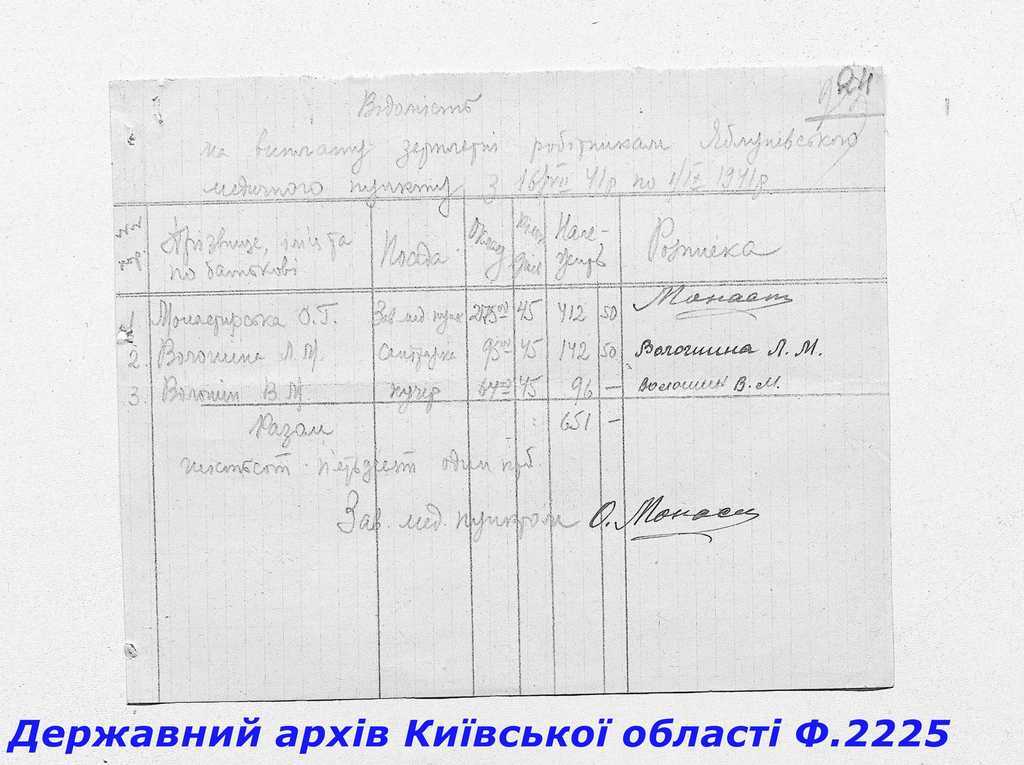 24
Відомість
на виплату зарплетні робітникам Яблунівського
медичного пункту з 16/VII 41р по 1/IX 1941р
Прізвище, імʼя та по батькові Посада Оклад днів Належить Розписка
1 Монастирська О.Г. Зав мед пунк 275 00 45 412 50 Монаст
2. Волошина Л.М. Санітарка 95 00 45 142 50 Волошина Л.М.
3. Волошин В.М. кучер 64 00 45 96 — Волошин В.М.
Разом : 651 —
шістьсот пʼятьдесят один крб.
Зав. мед. пунктом О. Монаст
Державний архів Київської області Ф.2225